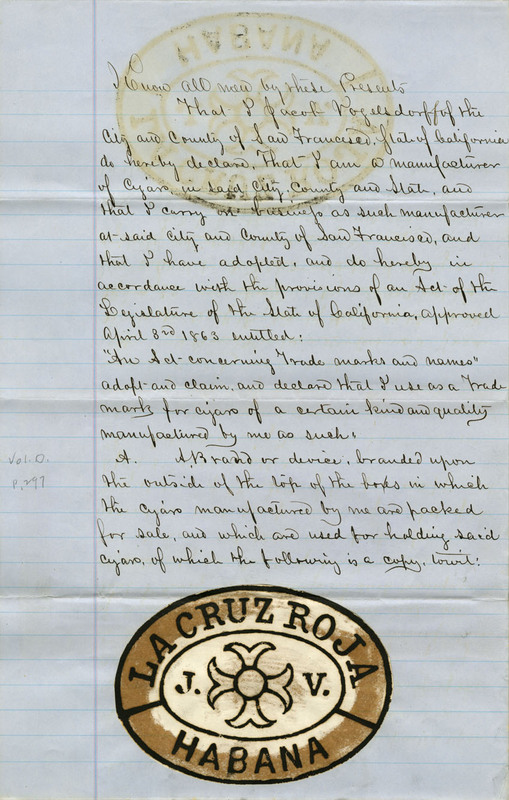 HABANA
Know all men by these Presents
That I Jacob Vogelsdorff of the
City and County of San Francisco, State of California
do hereby declare, That I am a manufacturer
of Cigars, in said City, County and State, and
that I carry on business as such manufacturer
at said City and County of San Francisco, and
that I have adopted, and do hereby in
accordance with the provisions of an Act of the
Legislature of the State of California, approved
April 3rd 1863 entitled:
"An Act concerning Trade marks and names"
adopt and claim, and declare that I use as a Trade
mark for cigars of a certain kind and quality
manufactured by me as such:
A. A Brand or device, branded upon
the outside of the top of the boxes in which
the cigars manufactured by me are packed
for sale, and which are used for holding said
cigars, of which the following is a copy, towit:
Vol. D.
p. 297
LA CRUZ ROJA
J. V.
HABANA